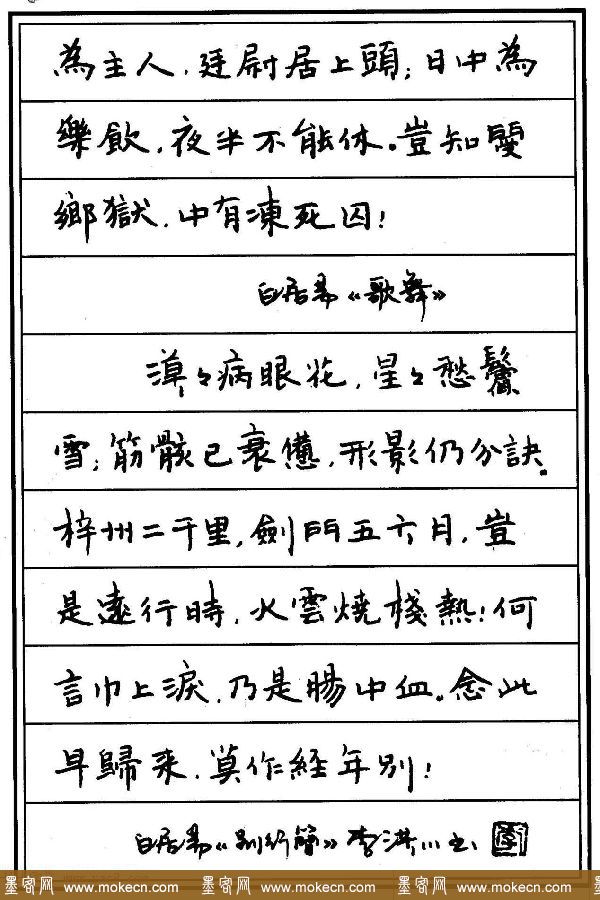 為主人，廷尉居上頭；日中為
樂飲，夜半不能休。豈知閿
鄉獄，中有凍死囚！
白居易《歌舞》
漠々病眼花，星々愁鬢
雪；筋骸已衰憊，形影仍分訣。
梓州二千里，劍門五六月，豈
是遠行時，火雲燒棧熱！何
言巾上淚，乃是腸中血。念此
早歸來，莫作經年別！
白居易《別行簡》李洪川书
墨客网 www.mokecn.com 墨客网 www.mokecn.com 墨客网 www.mokecn.com